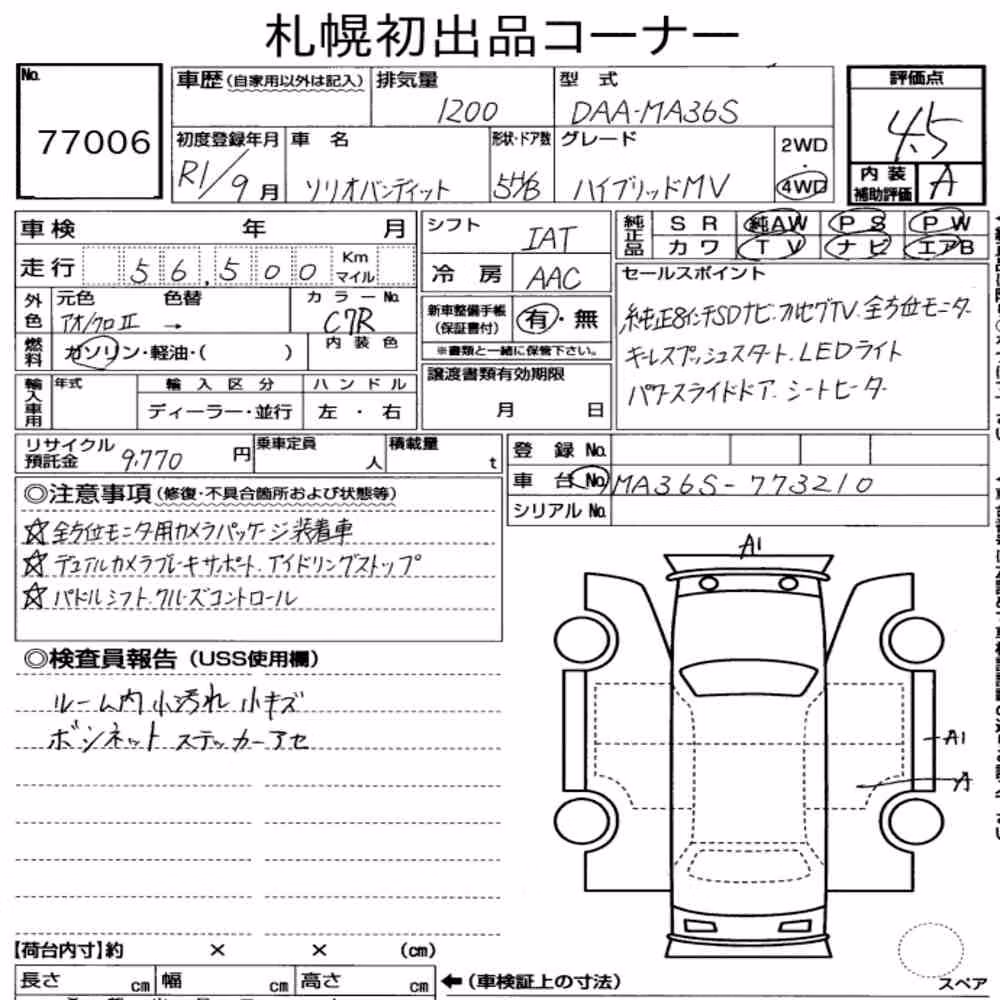 札幌初出品コーナー
No.
77006
車歴(自家用以外は記入)
排気量
1200
型 式
DAA-MA36S
評価点
4.5
初度登録年月
R1/9月
車 名
ソリオバンディット
形状・ドア数
5HB
グレード
ハイブリッドMV
2WD
・
4WD
内装
補助評価
A
車検 年 月
シフト
IAT
純正品
SR 純AW PS PW
カワ TV ナビ エアB
走行 56,500 Km
マイル
冷 房
AAC
セールスポイント
純正8インチSDナビ.フルセグTV.全方位モニタ
キーレスプッシュスタート.LEDライト
パワースライドドア.シートヒータ
外色
元色 色替
アオ/クロⅡ →
カラーNo.
C7R
新車整備手帳
(保証書付)
有・無
※書類と一緒に保管下さい。
燃料
ガソリン・軽油・( )
内装色
輸入車用
年式
輸入区分
ディーラー・並行
ハンドル
左・右
譲渡書類有効期限
月 日
リサイクル
預託金
9,770 円
乗車定員
人
積載量
t
登 録 No.
車 台 No.
MA36S-773210
シリアル No.
◎注意事項(修復・不具合箇所および状態等)
☆全方位モニタ用カメラパッケージ装着車
☆デュアルカメラブレーキサポート.アイドリングストップ
☆パドルシフト.クルーズコントロール
◎検査員報告(USS使用欄)
ルーム内小汚れ 小キズ
ボンネット ステッカーアセ
A1
A1
A
【荷台内寸】約 × × (cm)
長さ cm
幅 cm
高さ cm
←(車検証上の寸法)
スペア